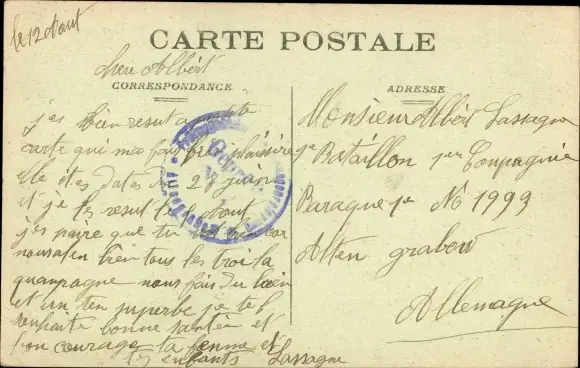 le 12 Aout
CARTE POSTALE
CORRESPONDANCE
ADRESSE
chere Albért
j'es bien resut
carte qui mes fais plaisire
Elle etes datés du 28 juin
et je les resut le Aout
j'espaire que tu bien car
nous alon bien tous les troi la
quanpagne nous fais du bien
et un ten superbe je te
souhaite bonne santée et
bon courage ta femme et
tes enfants Lassagne
Monsieur Albért Lassagne
Bataillon Compagnie
Baraque No 1999
Alten grabow
Allemagne